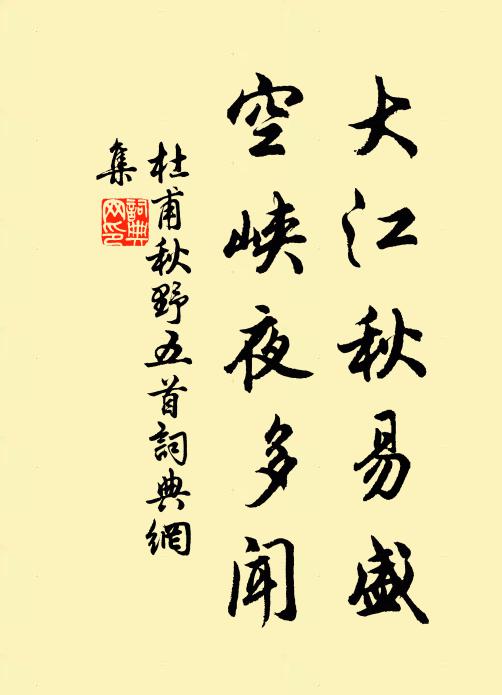 大江秋易盛
空峡夜多闻
杜甫秋野五首詞典網
集
詞典网印